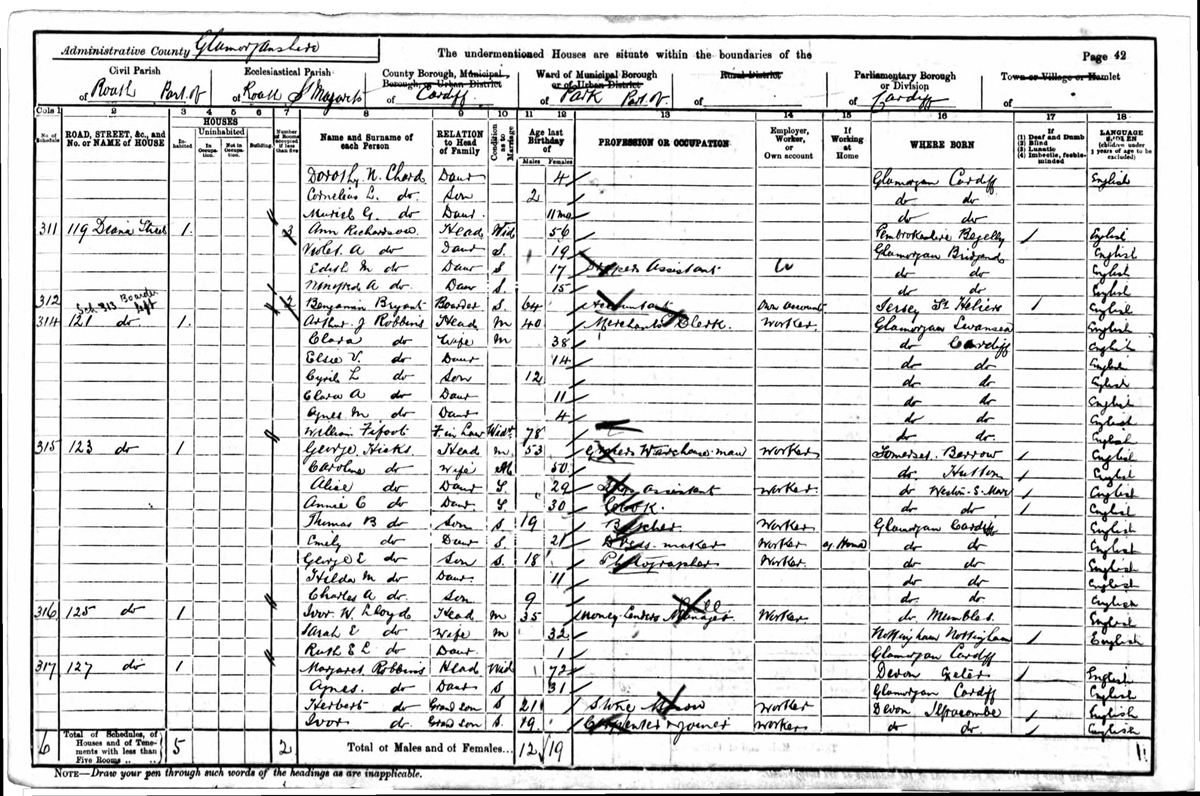 Administrative County Glamorganshire
The undermentioned Houses are situate within the boundaries of the
Page 42
Civil Parish
of Roath Part of
Ecclesiastical Parish
of Roath St Margarets
County Borough, Municipal Borough, or Urban District
of Cardiff
Ward of Municipal Borough or of Urban District
of Park Part of
Rural District
of
Parliamentary Borough or Division
of Cardiff
Town or Village or Hamlet
of
Cols 1 2 3 4 5 6 7 8 9 10 11 12 13 14 15 16 17 18
No. of Schedule
ROAD, STREET, &c., and No. or NAME of HOUSE
HOUSES
Inhabited
Uninhabited
In Occupation
Not in Occupation
Building
Number of Rooms occupied if less than five
Name and Surname of each Person
RELATION to Head of Family
Condition as to Marriage
Age last Birthday of
Males Females
PROFESSION OR OCCUPATION
Employer, Worker, or Own account
If Working at Home
WHERE BORN
If (1) Deaf and Dumb (2) Blind (3) Lunatic (4) Imbecile, feeble-minded
LANGUAGE SPOKEN (children under 3 years of age to be excluded)
Dorothy N. Chard Daur 4 Glamorgan Cardiff English
Cornelius L. do Son 2 do do
Muriel G. do Daur 11 mo do do
311 119 Diana Street 1 3 Ann Richardson Head Wid 56 Pembrokeshire Begelly English
Violet A do Daur S. 19 Glamorgan Bridgend English
Edith M do Daur S 17 Drapers Assistant W do do English
do Daur S. 15 do do English
Sch 313 Boarder left
312 2 Benjamin Bryant Boarder S 64 Accountant Own account Jersey St Heliers English
314 121 do 1 Arthur J Robbins Head M 40 Merchants Clerk. Worker Glamorgan Swansea English
Clara do Wife M 38 do Cardiff English
Elsie V. do Daur 14 do do English
Cyril L do Son 12 do do English
Clara A do Daur 11 do do English
Agnes M do Daur 4 do do English
William Fifoot F in Law Widr 78 do do English
315 123 do 1 George Hicks Head M 53 Warehouse man Worker Somerset. Barrow English
Caroline do Wife M 50 do Hutton English
Alice do Daur S 29 Assistant Worker do Weston-S-Mare English
Annie C do Daur S 30 Cook. do do English
Thomas B do Son S 19 Butcher Worker Glamorgan Cardiff English
Emily do Daur S. 21 Dress-maker Worker at Home do do English
George E do Son S 18 Photographer Worker do do English
Hilda M do Daur 11 do do English
Charles A do Son 9 do do English
316 125 do 1 Ivor W. Lloyd Head M 35 Money Lenders Manager Worker do Mumbles English
Sarah E do Wife M 32 Nottingham Nottingham English
Ruth E L do Daur 1 Glamorgan Cardiff
317 127 do 1 Margaret Robbins Head Wid 72 Devon Exeter English
Agnes. do Daur S 31 Glamorgan Cardiff English
Herbert do Grand son S 21 Stone Mason Worker Devon Ilfracombe English
Ivor do Grand son S. 19 Carpenter & joiner Worker do do English
6 Total of Schedules, of Houses and of Tenements with less than Five Rooms 5 2 Total of Males and of Females... 12 19
NOTE—Draw your pen through such words of the headings as are inapplicable.